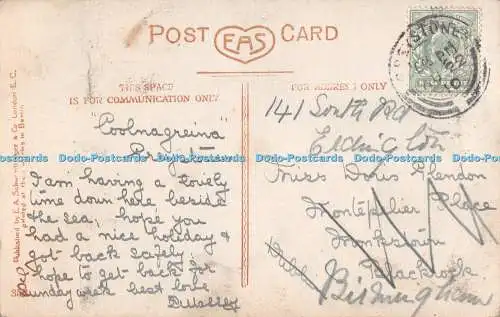 POST CARD
EAS
THIS SPACE
IS FOR COMMUNICATION ONLY
FOR ADDRESS ONLY
"Coolnagreina"
Greystones
I am having a lovely
time down here beside
the sea, hope you
had a nice holiday &
got back safely
hope to get back for
Sunday week best love
141 South Rd
Erdington
Miss Doris Glendon
Montpelier Place
Monkstown
Blackrock
Birmingham
GREYSTONES
Published by E. A. & Co London E.C.
printed at the in Berlin
Dodo-Postcards Dodo-Postcards Dodo-Postcards Dodo-Postcards Dodo-Postcards Dodo-Postcards